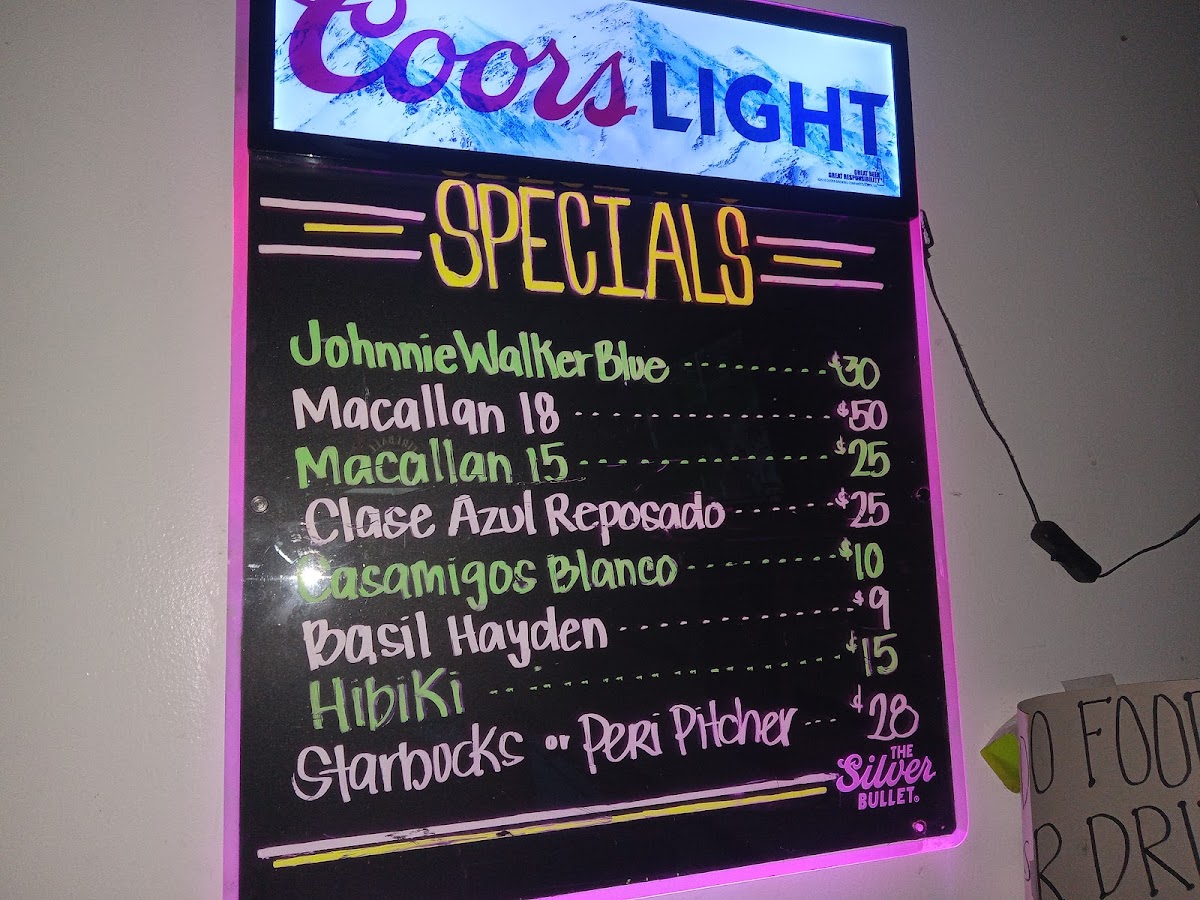 Coors LIGHT
GREAT BEER
GREAT RESPONSIBILITY
SPECIALS
Johnnie Walker Blue ---------- $30
Macallan 18 ---------------- $50
Macallan 15 ---------------- $25
Clase Azul Reposado ------ $25
Casamigos Blanco --------- $10
Basil Hayden -------------- $9
Hibiki -------------------- $15
Starbucks or Peri Pitcher --- $28
THE
Silver
BULLET®
O FOOD
R DRI